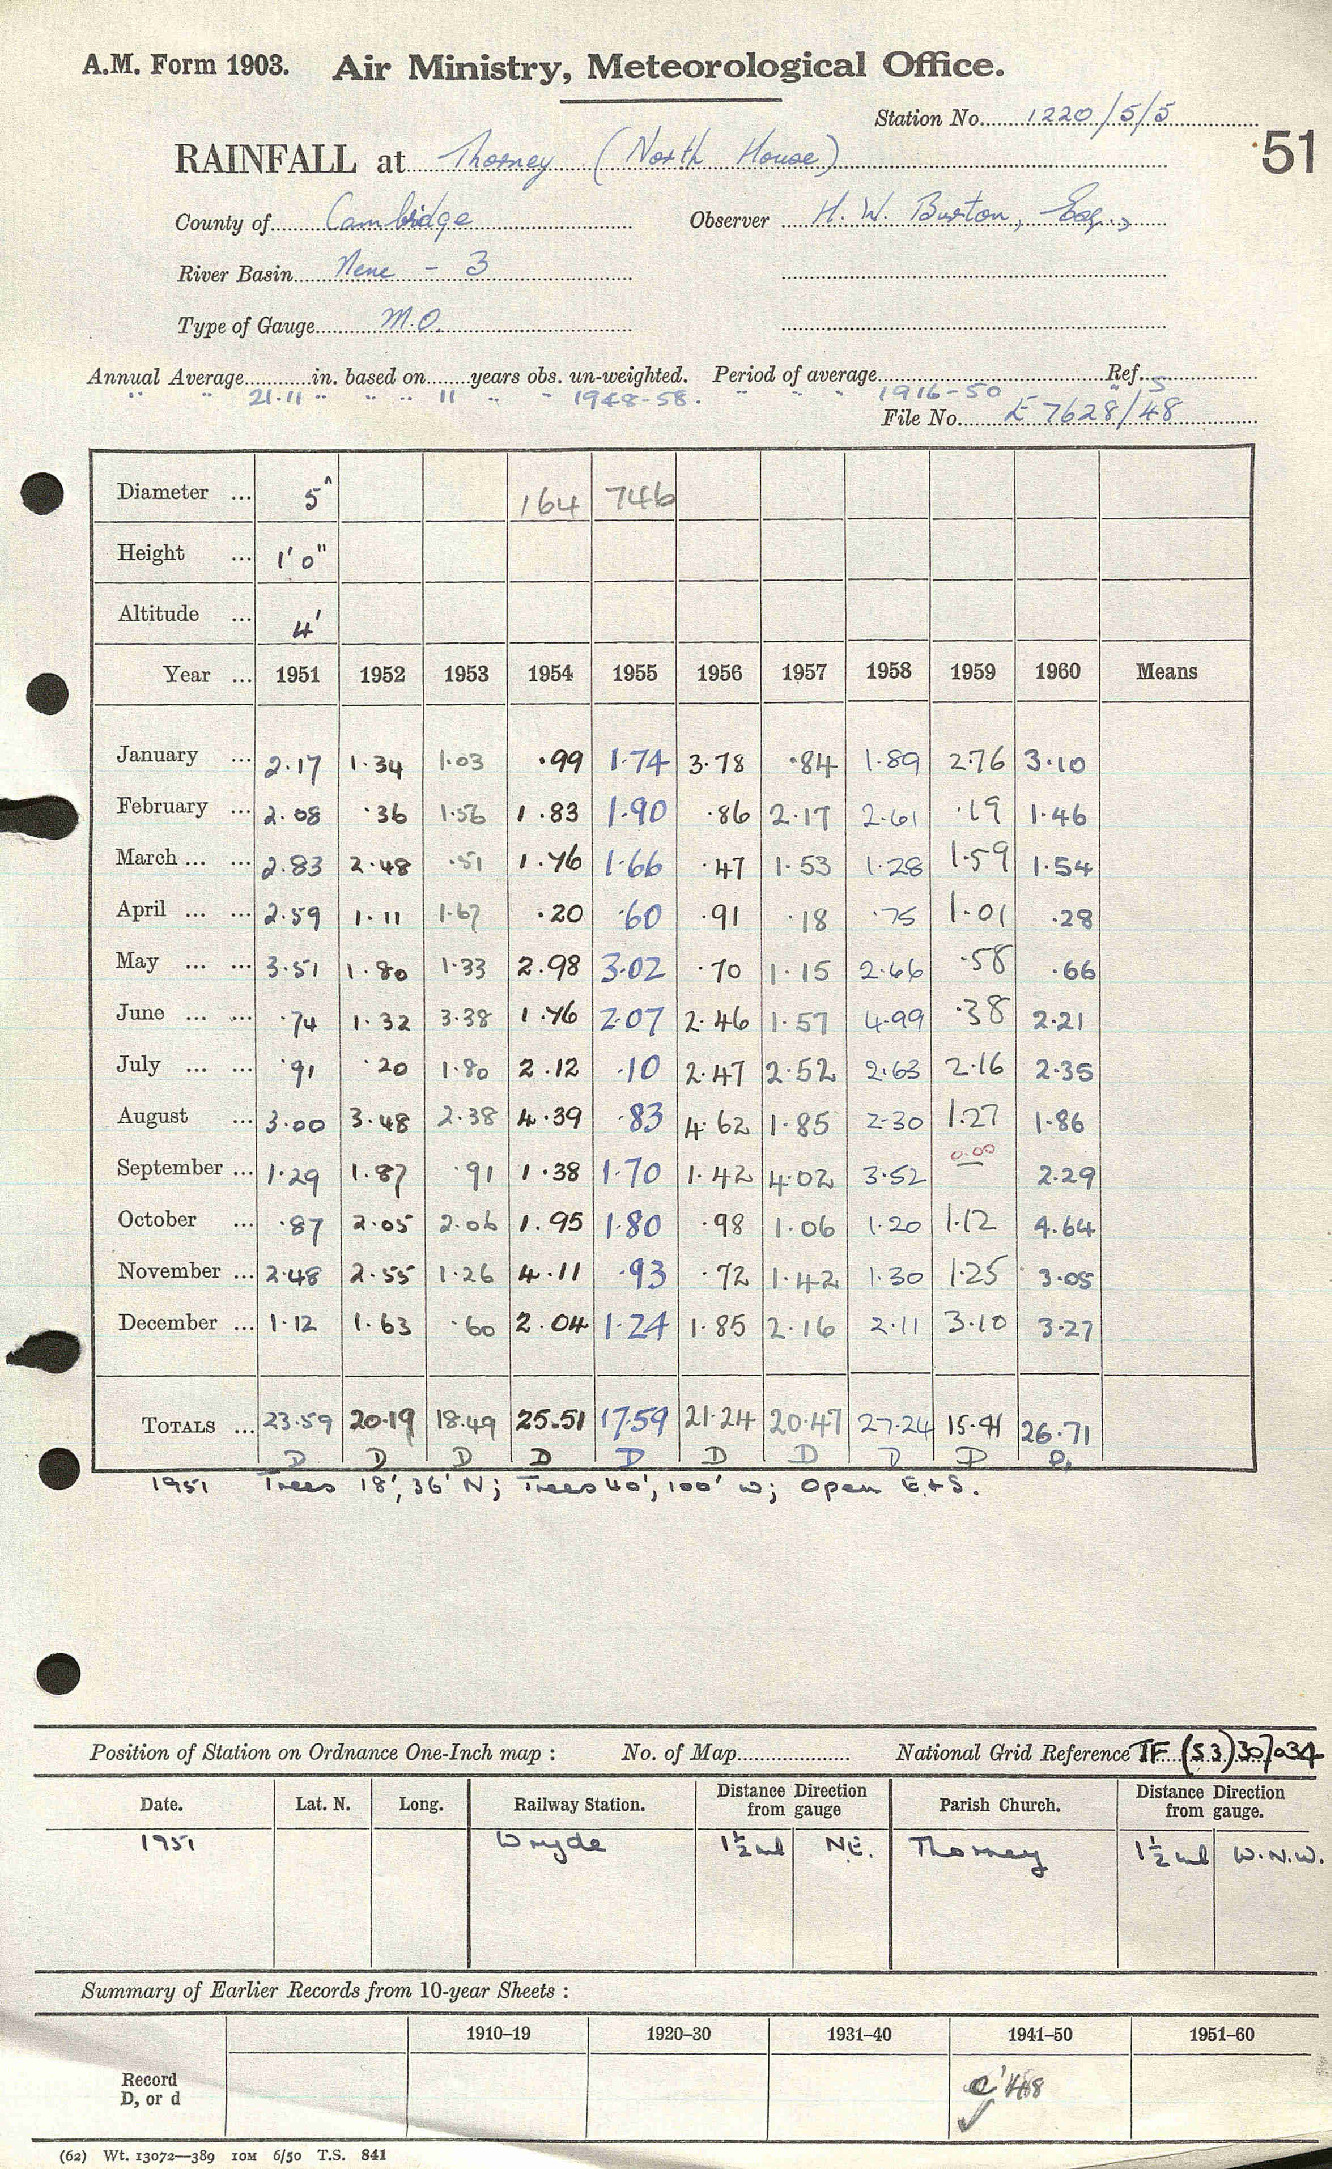 A.M. Form 1903. Air Ministry, Meteorological Office.
Station No. 1220/5/5
51
RAINFALL at Thorney (North House)
County of Cambridge Observer H. W. Burton, Esq.,
River Basin Nene - 3
Type of Gauge M.O.
Annual Average in. based on years obs. un-weighted. Period of average Ref. S
" " 21.11 " " " 11 " " 1948-58. " " " 1916-50 "
File No. E 7628/48
Diameter ... 5" 164 746
Height ... 1' 0"
Altitude ... 4'
Year ... 1951 1952 1953 1954 1955 1956 1957 1958 1959 1960 Means
January ... 2.17 1.34 1.03 .99 1.74 3.78 .84 1.89 2.76 3.10
February ... 2.08 .36 1.56 1.83 1.90 .86 2.17 2.61 .19 1.46
March ... ... 2.83 2.48 .51 1.76 1.66 .47 1.53 1.28 1.59 1.54
April ... ... 2.59 1.11 1.67 .20 .60 .91 .18 .75 1.01 .28
May ... ... 3.51 1.80 1.33 2.98 3.02 .70 1.15 2.66 .58 .66
June ... ... .74 1.32 3.38 1.76 2.07 2.46 1.57 4.99 .38 2.21
July ... ... .91 .20 1.80 2.12 .10 2.47 2.52 2.63 2.16 2.35
August ... 3.00 3.48 2.38 4.39 .83 4.62 1.85 2.30 1.27 1.86
September ... 1.29 1.87 .91 1.38 1.70 1.42 4.02 3.52 0.00 2.29
October ... .87 2.05 2.06 1.95 1.80 .98 1.06 1.20 1.12 4.64
November ... 2.48 2.55 1.26 4.11 .93 .72 1.42 1.30 1.25 3.05
December ... 1.12 1.63 .60 2.04 1.24 1.85 2.16 2.11 3.10 3.27
TOTALS ... 23.59 20.19 18.49 25.51 17.59 21.24 20.47 27.24 15.41 26.71
D D D D D D D D D D.
1951 Trees 18', 36' N; Trees 40', 100' W; Open E + S.
Position of Station on Ordnance One-Inch map : No. of Map National Grid Reference TF (53) 307034
Date. Lat. N. Long. Railway Station. Distance from gauge Direction Parish Church. Distance from gauge. Direction
1951 Wryde 1½ ml NE. Thorney 1½ ml W.N.W.
Summary of Earlier Records from 10-year Sheets :
1910–19 1920–30 1931–40 1941–50 1951–60
Record D, or d
(62) Wt. 13072—389 10M 6/50 T.S. 841